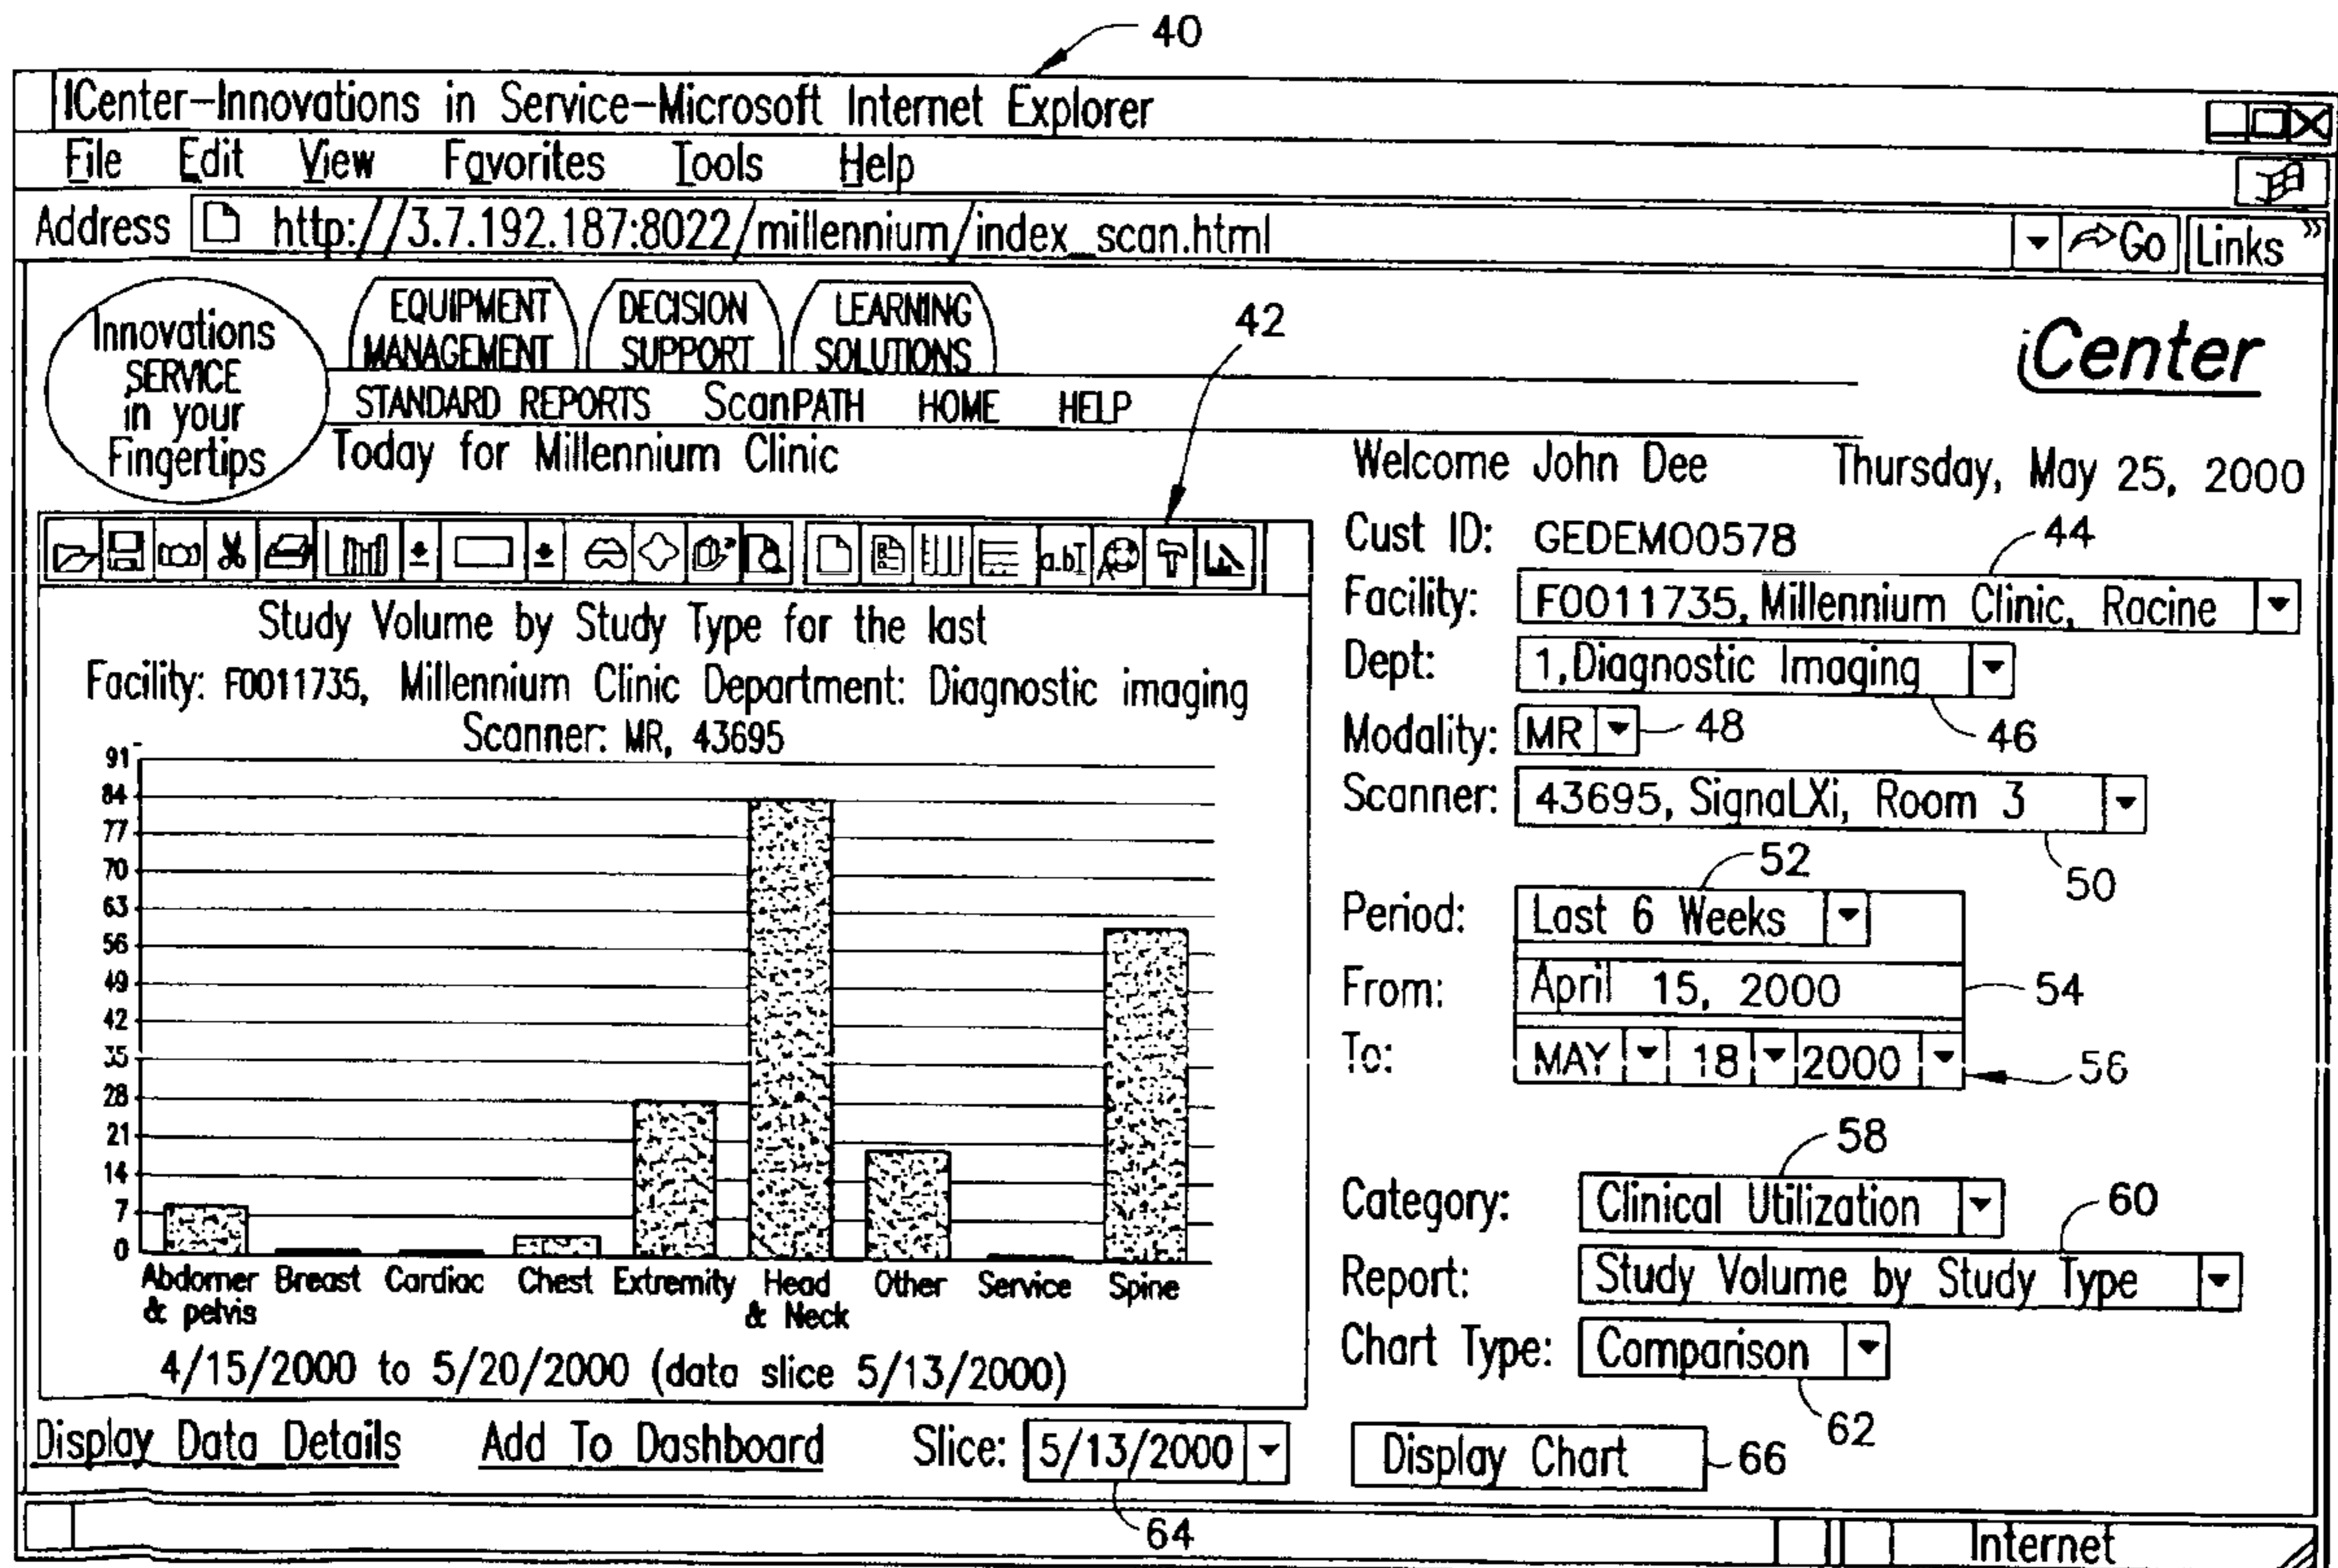 40
ICenter-Innovations in Service-Microsoft Internet Explorer
File Edit View Favorites Tools Help
Address http://3.7.192.187:8022/millennium/index_scan.html Go Links »
Innovations
SERVICE
in your
Fingertips
EQUIPMENT
MANAGEMENT
DECISION
SUPPORT
LEARNING
SOLUTIONS
42
iCenter
STANDARD REPORTS ScanPATH HOME HELP
Today for Millennium Clinic
Welcome John Dee Thursday, May 25, 2000
a.bI
A
Study Volume by Study Type for the last
Facility: F0011735, Millennium Clinic Department: Diagnostic imaging
Scanner: MR, 43695
91
84
77
70
63
56
49
42
35
28
21
14
7
0
Abdomer & pelvis
Breast
Cardiac
Chest
Extremity
Head & Neck
Other
Service
Spine
4/15/2000 to 5/20/2000 (data slice 5/13/2000)
Display Data Details Add To Dashboard Slice: 5/13/2000
64
Cust ID: GEDEM00578
44
Facility: F0011735, Millennium Clinic, Racine
Dept: 1,Diagnostic Imaging
46
Modality: MR 48
Scanner: 43695, SignaLXi, Room 3
50
52
Period: Last 6 Weeks
From: April 15, 2000 54
To: MAY 18 2000 56
58
Category: Clinical Utilization
60
Report: Study Volume by Study Type
Chart Type: Comparison
62
Display Chart 66
Internet